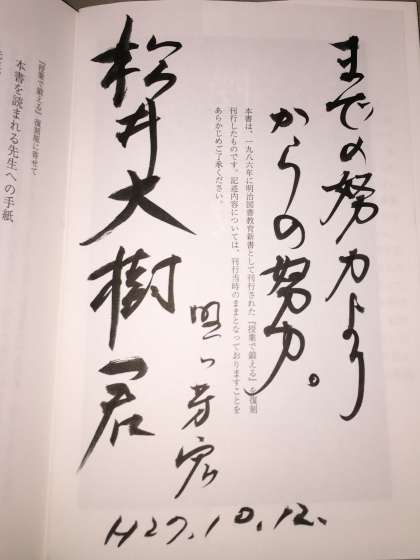 までの努力より
からの努力。
本書は、一九八六年に明治図書教育新書として刊行された『授業で鍛える』を復刻
刊行したものです。記述内容については、刊行当時のままとなっておりますことを
あらかじめご了承ください。
野口芳宏
松井大樹君
H27.10.12.
『授業で鍛える』復刻版に寄せて
本書を読まれる先生への手紙